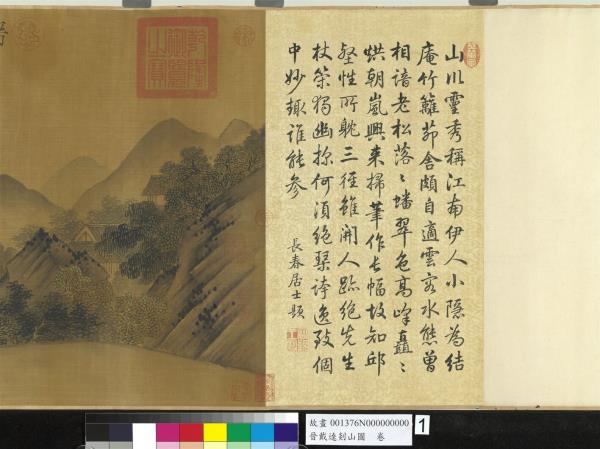 山川靈秀稱江南伊人小隱為結
庵竹籬茆舍頗自適雲容水態曾
相諳老松落〻蟠翠色高峰矗〻
烘朝嵐興來掃筆作長幅故知邱
壑性所耽三徑雖開人跡絕先生
杖策獨幽探何須絕琹誇逸致個
中妙趣誰能參
長春居士題
故畫 001376N000000000
晉戴逵剡山圖 卷
1